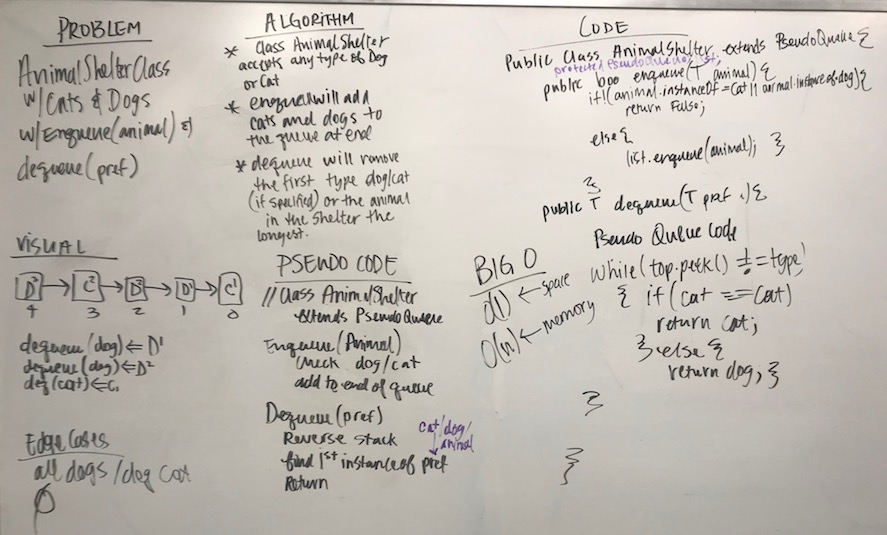 PROBLEM
AnimalShelterClass
w/Cats & Dogs
w/Enqueue(animal) &
dequeue(pref)
VISUAL
D³ → C² → D² → D¹ → C¹
4 3 2 1 0
dequeue(dog) ⇐ D¹
dequeue(dog) ⇐ D²
deq(cat) ⇐ C₁
Edge Cases
all dogs/dog cat
ALGORITHM
* Class AnimalShelter
accepts any type of Dog
or Cat
* enqueue will add
cats and dogs to
the queue at end
* dequeue will remove
the first type dog/cat
(if specified) or the animal
in the shelter the
longest.
PSEUDO CODE
// Class AnimalShelter
extends PseudoQueue
Enqueue(Animal)
check dog/cat
add to end of queue
Dequeue(pref)
cat/dog/
animal
Reverse stack
find 1st instance of pref
Return
BIG O
O(1) ← space
O(n) ← memory
CODE
Public Class AnimalShelter extends PseudoQueue {
protected PseudoQueue list;
public boo enqueue(T animal) {
if!(animal.instanceOf = Cat || animal.instance of dog){
return False;
else {
list.enqueue(animal); }
}
public T dequeue(T pref) {
Pseudo Queue Code
while(top.peek() != type)
{ if (cat == Cat)
return cat;
} else {
return dog; }
}
}
}